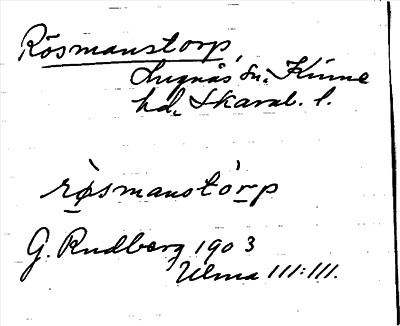 Rösmanstorp,
Lugnås sn. Kinne
hd. Skarab. l.
rø̀smanstórp
G. Rudberg 1903
Ulma 111:111.